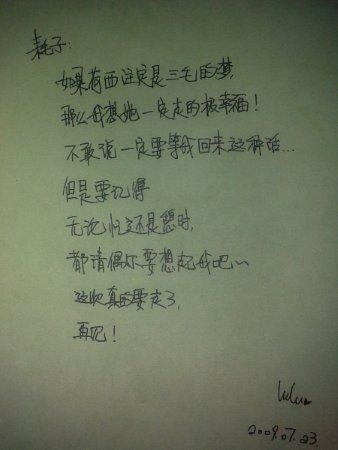 耗子:
如果荷西注定是三毛的梦,
那么我想她一定走的很幸福!
不敢说一定要等我回来这种话...
但是要记得
无论忙还是闲时,
都请偶尔要想起我吧~
这次真的要走了,
再见!
lulu
2009.07.23.